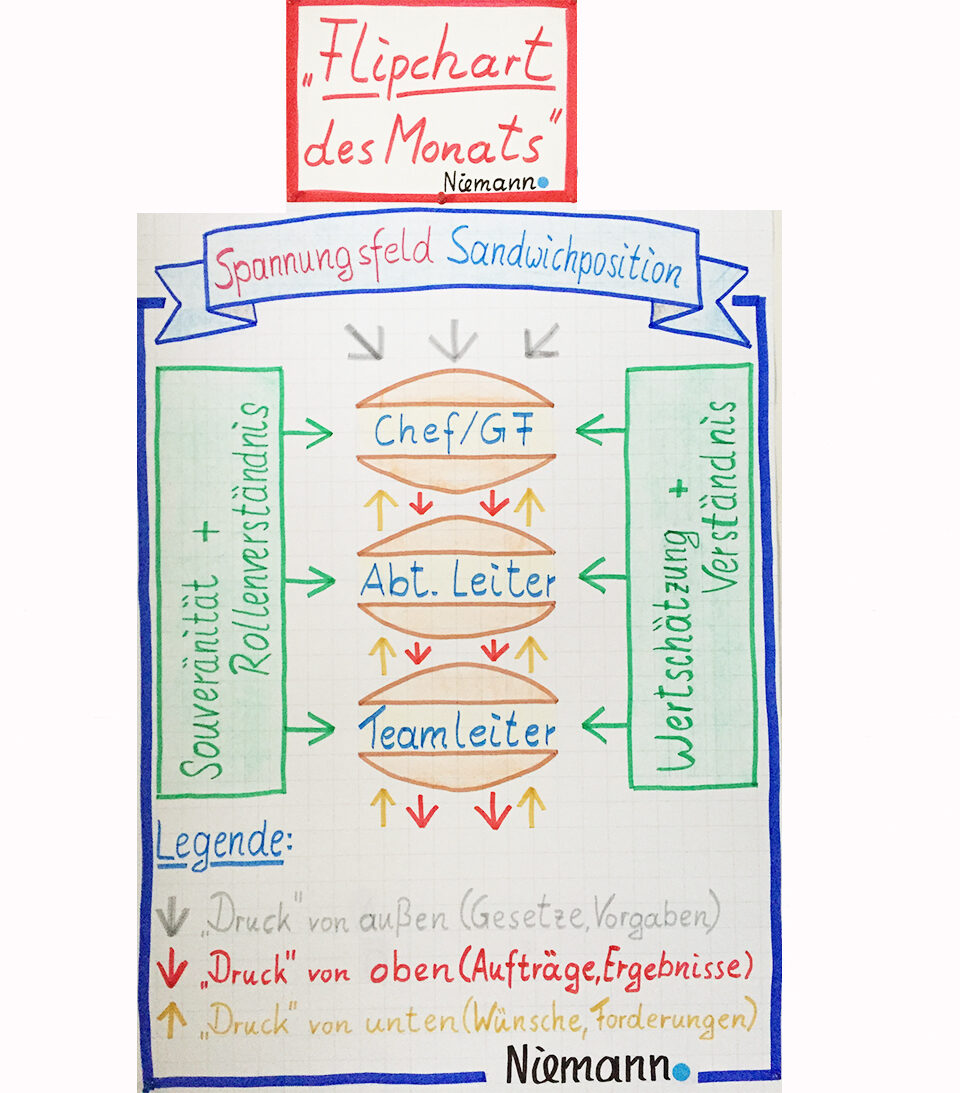 „Flipchart
des Monats“
Niemann
Spannungsfeld Sandwichposition
Souveränität +
Rollenverständnis
Chef/GF
Abt. Leiter
Teamleiter
Wertschätzung +
Verständnis
Legende:
„Druck“ von außen (Gesetze, Vorgaben)
„Druck“ von oben (Aufträge, Ergebnisse)
„Druck“ von unten (Wünsche, Forderungen)
Niemann